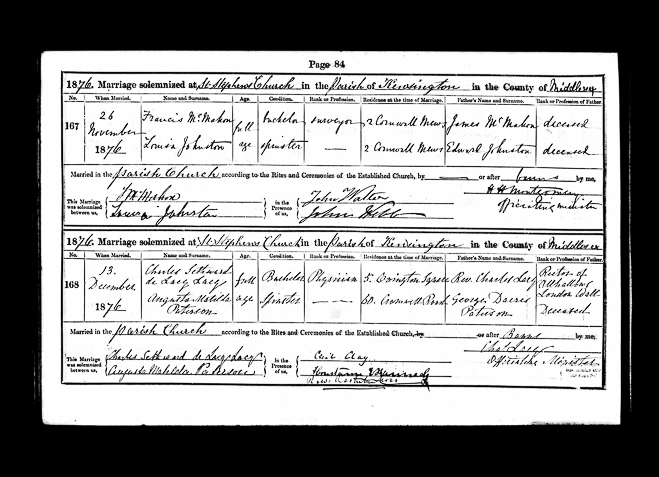 Page 84
1876. Marriage solemnized at St Stephens Church in the Parish of Kensington in the County of Middlesex
No. When Married. Name and Surname. Age. Condition. Rank or Profession. Residence at the time of Marriage. Father's Name and Surname. Rank or Profession of Father.
167 26 November 1876 Francis McMahon full age bachelor surveyor 2 Cornwall Mews James McMahon deceased
Louisa Johnston spinster — 2 Cornwall Mews Edward Johnston deceased
Married in the Parish Church according to the Rites and Ceremonies of the Established Church, by — or after banns by me,
H H Montgomery
officiating minister
This Marriage was solemnized between us, McMahon Louisa Johnston in the Presence of us, John Walter John
1876. Marriage solemnized at St Stephens Church in the Parish of Kensington in the County of Middlesex
No. When Married. Name and Surname. Age. Condition. Rank or Profession. Residence at the time of Marriage. Father's Name and Surname. Rank or Profession of Father.
168 13. December 1876 Charles de Lacy Lacy full age Bachelor Physician 5. Ovington Square Rev. Charles Lacy Rector of Allhallows London Wall
Augusta Matilda Paterson Spinster — 60. Cromwell Road George Paterson Deceased
Married in the Parish Church according to the Rites and Ceremonies of the Established Church, by or after Banns by me,
Officiating Minister
This Marriage was solemnized between us, Charles de Lacy Lacy Augusta Matilda Paterson in the Presence of us, Cecil Clay